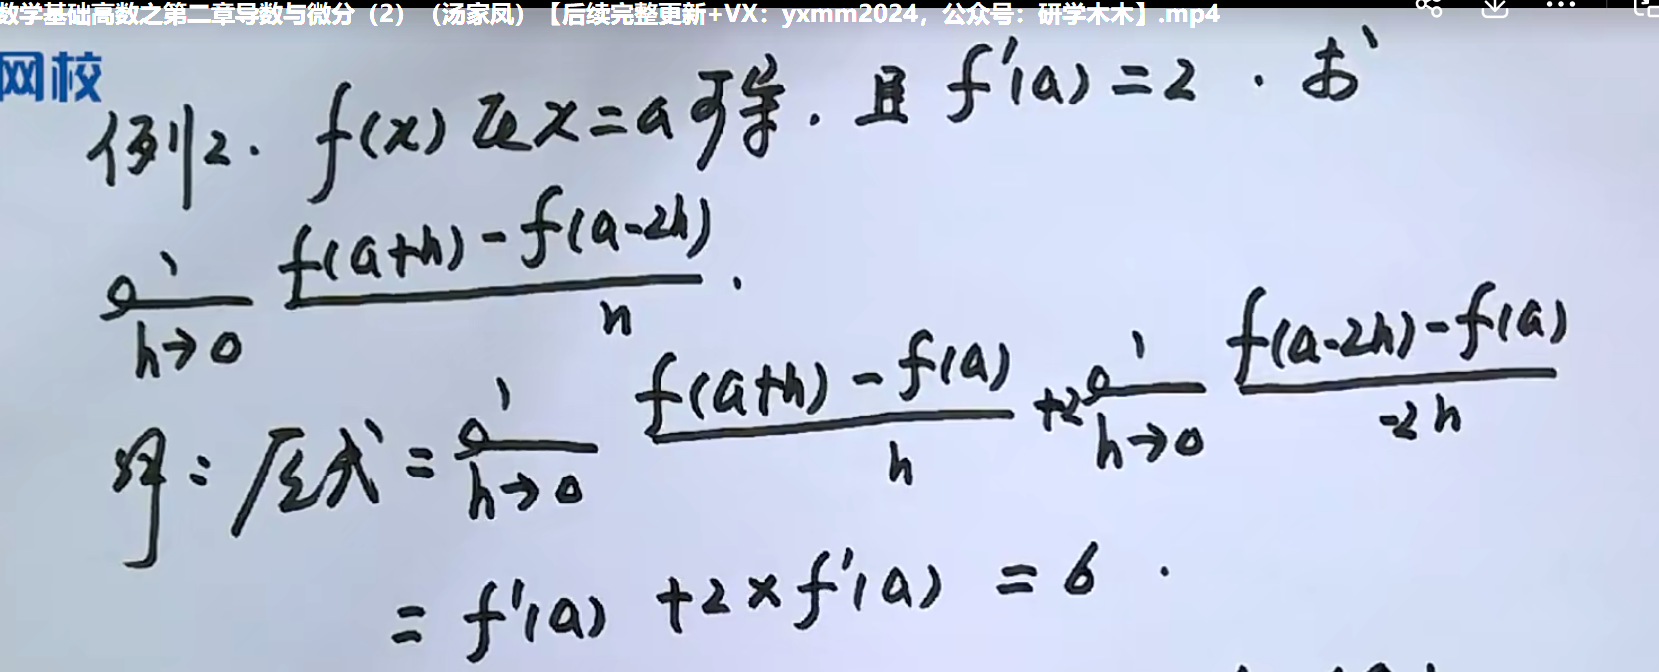 数学基础高数之第二章导数与微分（2）（汤家凤）【后续完整更新+VX：yxmm2024，公众号：研学木木】.mp4
网校
例2. f(x) 在 x=a 可导. 且 f'(a)=2 . 求
lim h→0 (f(a+h)-f(a-2h))/h .
解: 原式 = lim h→0 (f(a+h)-f(a))/h +2 lim h→0 (f(a-2h)-f(a))/(-2h)
= f'(a) +2×f'(a) = 6 .